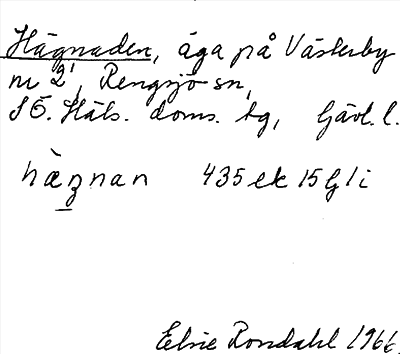 Hägnaden, äga på Västerby
nr 2, Rengsjö sn,
SÖ. Häls. doms. tg, Gävl. l.
hæ̀ŋnan 435 ek 15 G l i
Elsie Rondahl 1966.